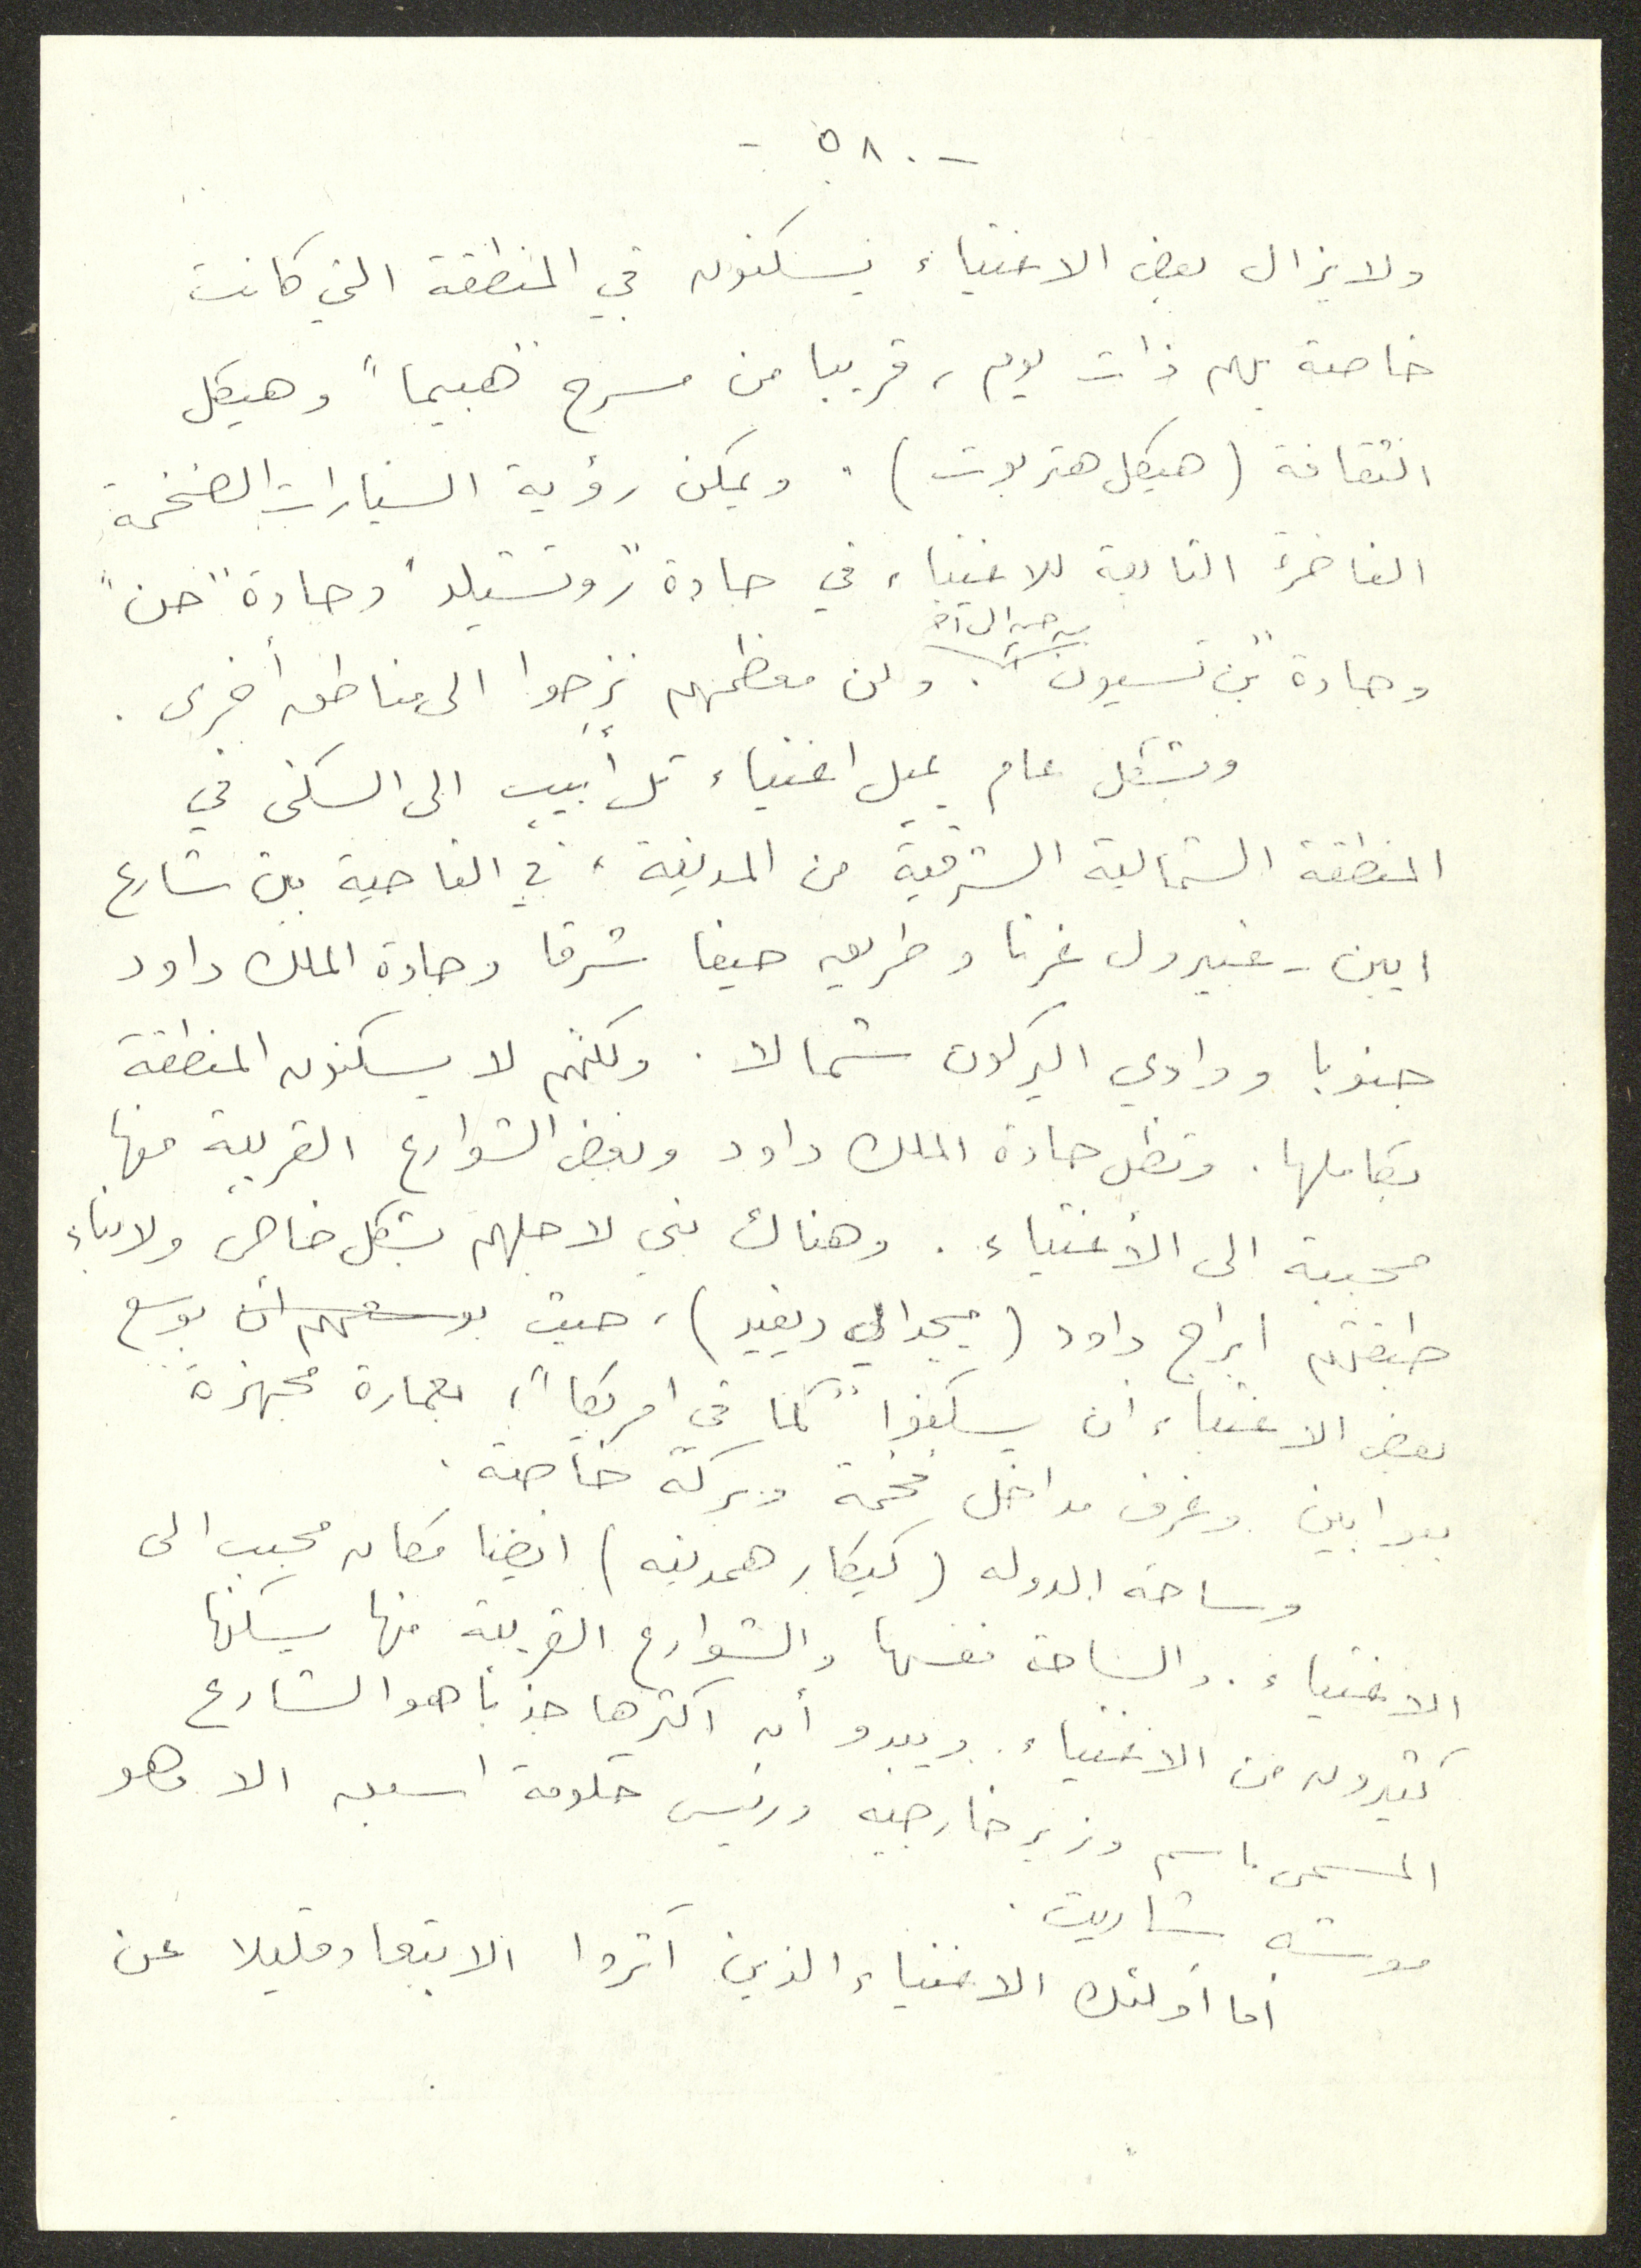 - ٥٨٠ -
ولا يزال بعض الاغنياء يسكنون في المنطقة التي كانت
خاصة بهم ذات يوم، قريبا من مسرح "هبيما" وهيكل
الثقافة (هيكل هتربوت). ويمكن رؤية السيارات الضخمة
الفاخرة التابعة للاغنياء في جادة "روتشيلد" وجادة "حن"
وجادة "بن تسيون" من حين الى آخر. ولكن معظمهم نزحوا الى مناطق أخرى.
وبشكل عام يميل اغنياء تل أبيب الى السكنى في
المنطقة الشمالية الشرقية من المدينة، في الناحية بين شارع
ايبن - غبيرول غربا وطريق حيفا شرقا وجادة الملك داود
جنوبا ووادي اليركون شمالا. ولكنهم لا يسكنون المنطقة
بكاملها. وتظل جادة الملك داود وبعض الشوارع القريبة منها
محببة الى الأغنياء. وهناك بني لاجلهم بشكل خاص ولابناء
طبقتهم ابراج داود (ميجدالي ديفيد)، حيث بوسعهم ان بوسع
بعض الاغنياء ان يسكنوا "كما في امريكا"، بعمارة مجهزة
ببوابين وغرف مداخل فخمة وبركة خاصة.
وساحة الدولة (كيكار همدينه) ايضا مكان محبب الى
الاغنياء. والساحة نفسها والشوارع القريبة منها يسكنها
كثيرون من الاغنياء. ويبدو أن اكثرها جذبا هو الشارع
المسمى باسم وزير خارجيه ورئيس حكومة اسبق الا وهو
موشه شاريت.
أما أولئك الاغنياء الذين آثروا الابتعاد قليلا عن